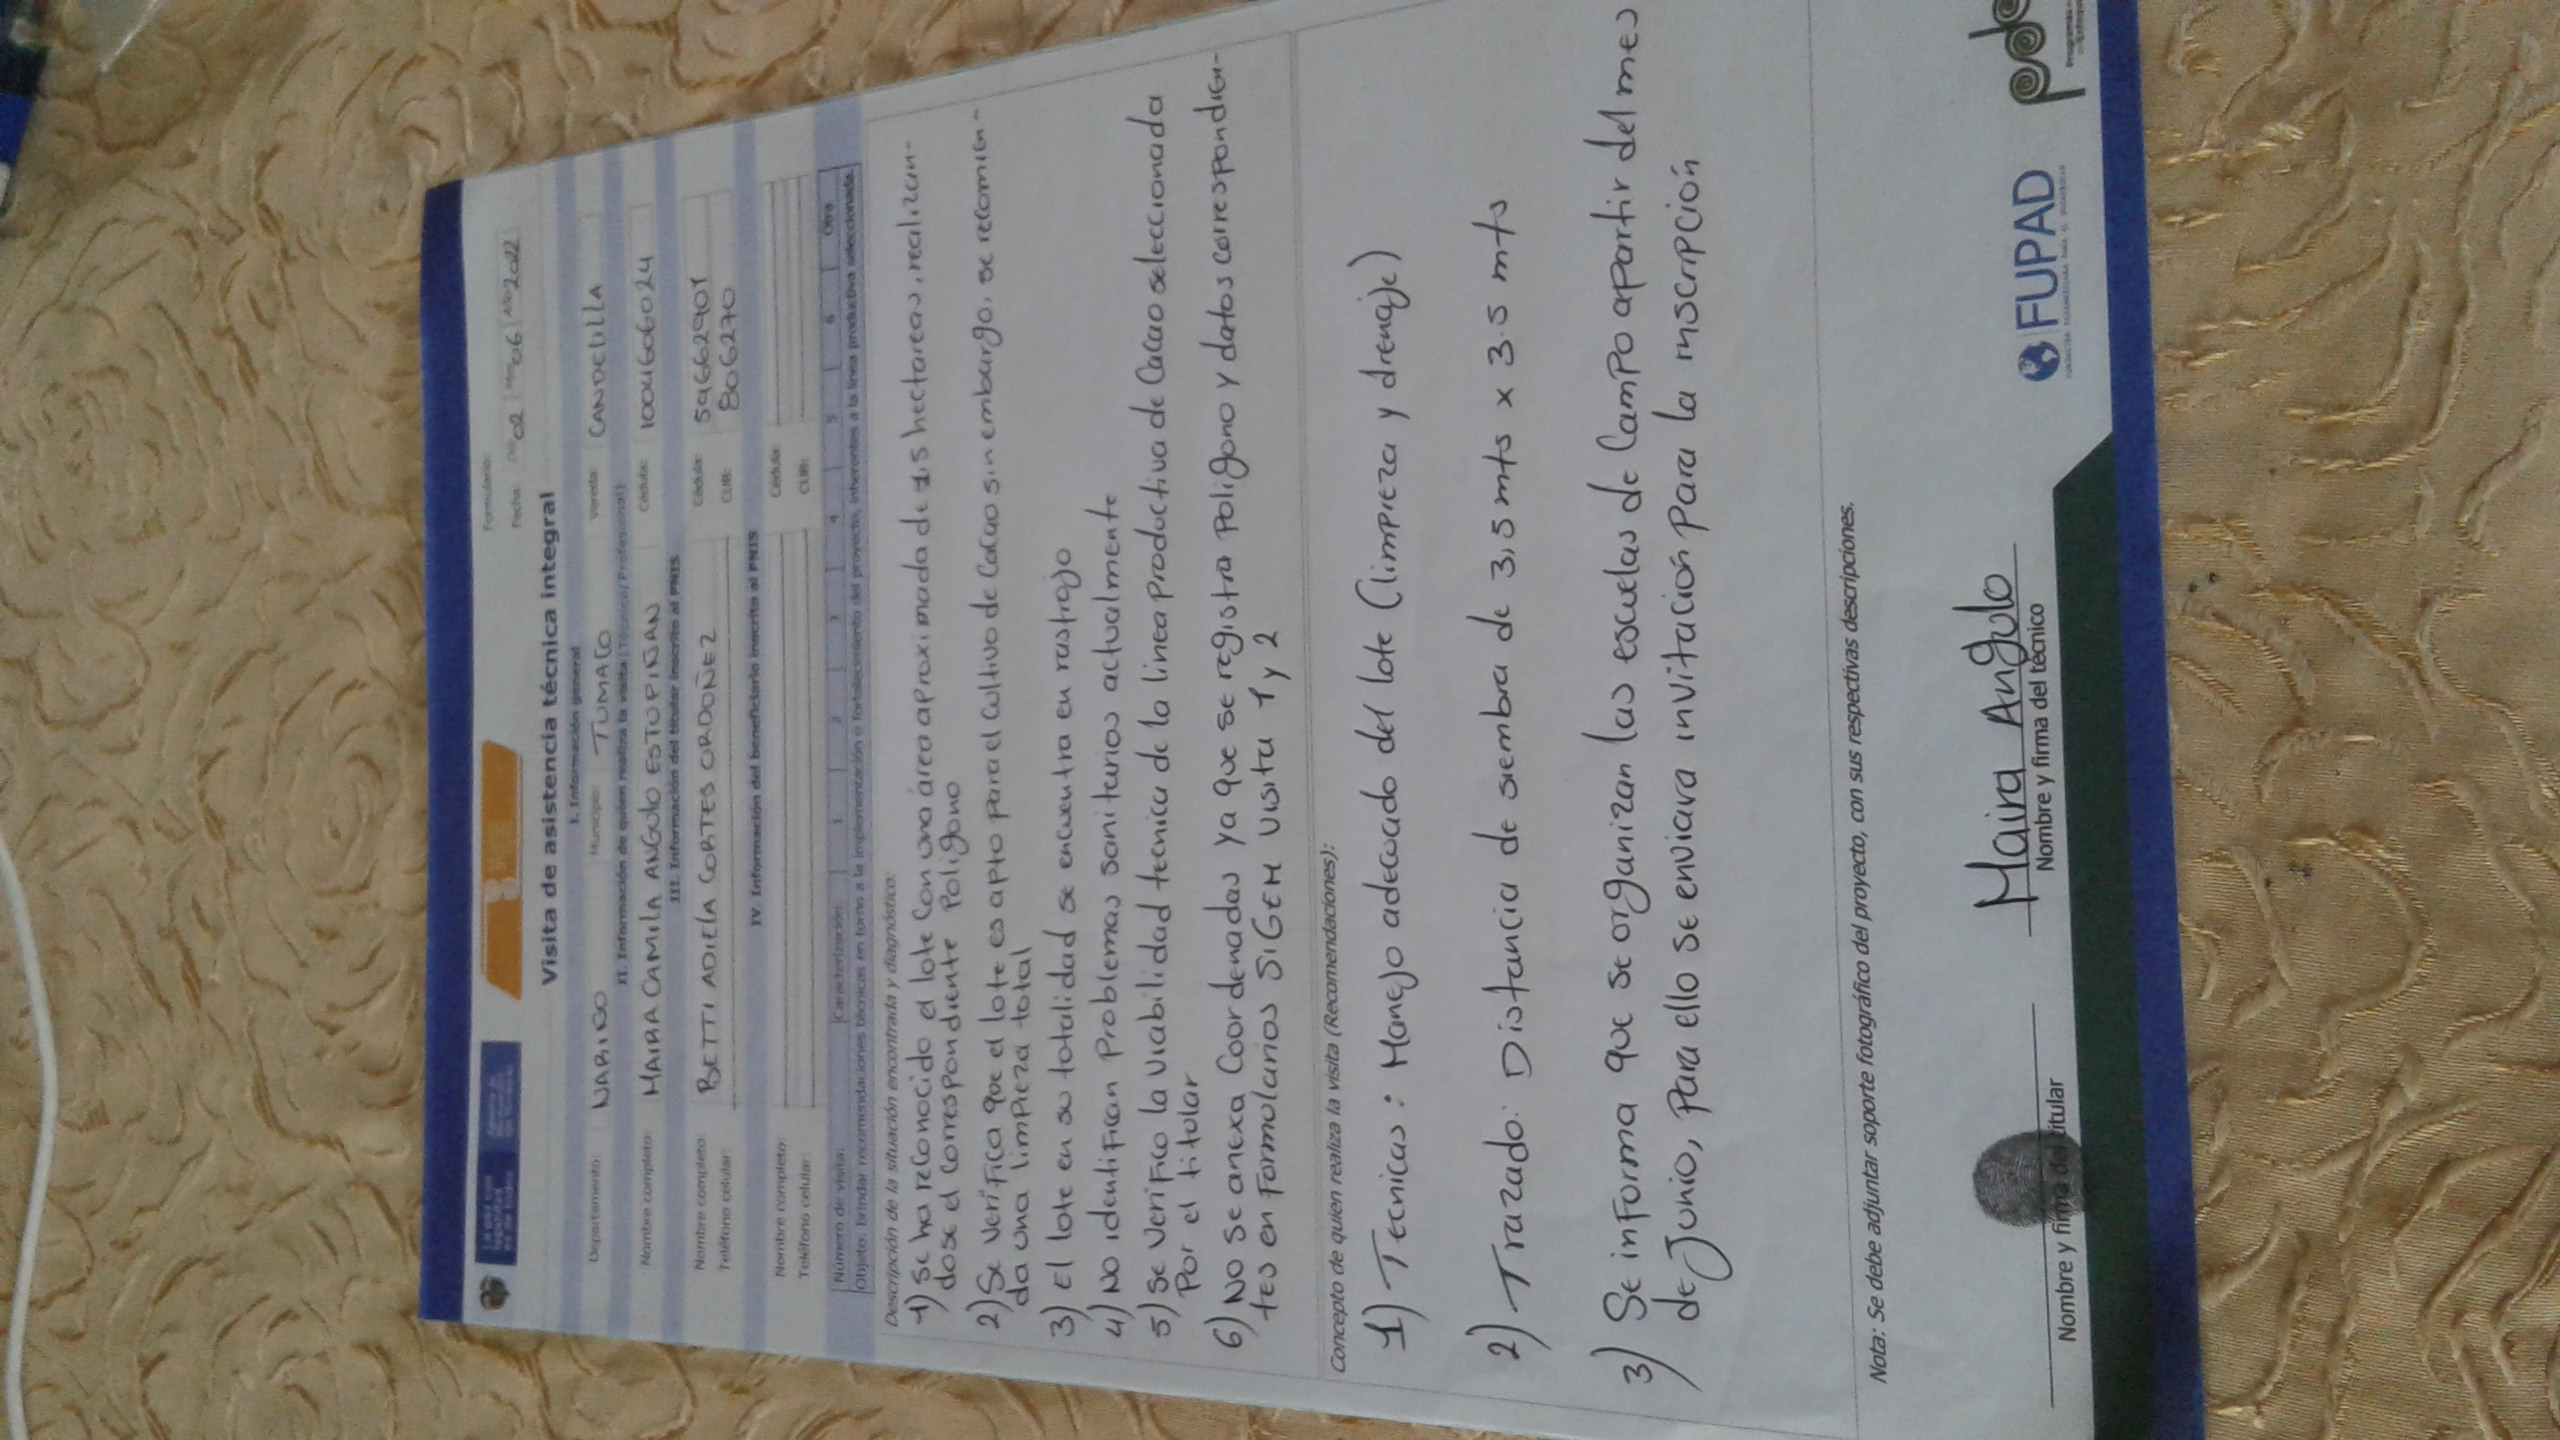 Formulario:
Fecha: Día 02 Mes 06 Año 2022
Visita de asistencia técnica integral
I. Información general
Departamento: NARIÑO Municipio: TUMACO Vereda: CANDELILLA
II. Información de quien realiza la visita (Técnico/Profesional)
Nombre completo: MAIRA CAMILA ANGULO ESTUPIÑAN Cédula: 1004606024
III. Información del titular inscrito al PNIS
Nombre completo: BETTI ADIELA CORTES ORDOÑEZ Cédula: 59662901
Teléfono celular: CUB: 806270
IV. Información del beneficiario inscrito al PNIS
Nombre completo: Cédula:
Teléfono celular: CUB:
Número de visita: Caracterización: 1 2 3 4 5 6 Otra
Objeto: brindar recomendaciones técnicas en torno a la implementación o fortalecimiento del proyecto, inherentes a la línea productiva seleccionada.
Descripción de la situación encontrada y diagnóstico:
1) se ha reconocido el lote con una área aproximada de 1.5 hectareas, realizan-
dose el correspondiente Poligono
2) Se verifica que el lote es apto para el cultivo de Cacao sin embargo, se recomien-
da una limpieza total
3) El lote en su totalidad se encuentra en rastrojo
4) No identifican Problemas sanitarios actualmente
5) Se verifico la viabilidad tecnica de la linea productiva de Cacao seleccionada
Por el titular
6) No se anexa Coordenadas ya que se registra Poligono y datos correspondien-
tes en Formularios SIGEM visita 1 y 2
Concepto de quien realiza la visita (Recomendaciones):
1) Tecnicas: Manejo adecuado del lote (limpieza y drenaje)
2) Trazado: Distancia de siembra de 3,5 mts x 3.5 mts
3) Se informa que se organizan las escuelas de Campo apartir del mes
de Junio, Para ello se enviara invitación Para la inscripción
Nota: Se debe adjuntar soporte fotográfico del proyecto, con sus respectivas descripciones.
Maira Angulo
Nombre y firma del titular Nombre y firma del técnico
FUPAD